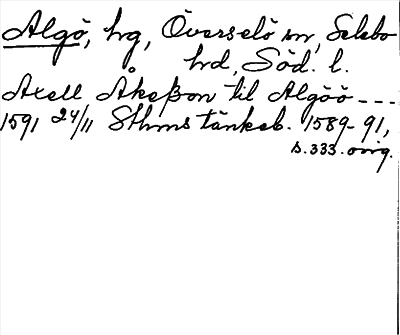 Algö, hg, Överselö sn, Selebo
hd, Söd. l.
Axell Åkeßon til Algöö ---
1591 24/11 Sthms tänkeb. 1589-91,
s. 333. orig.